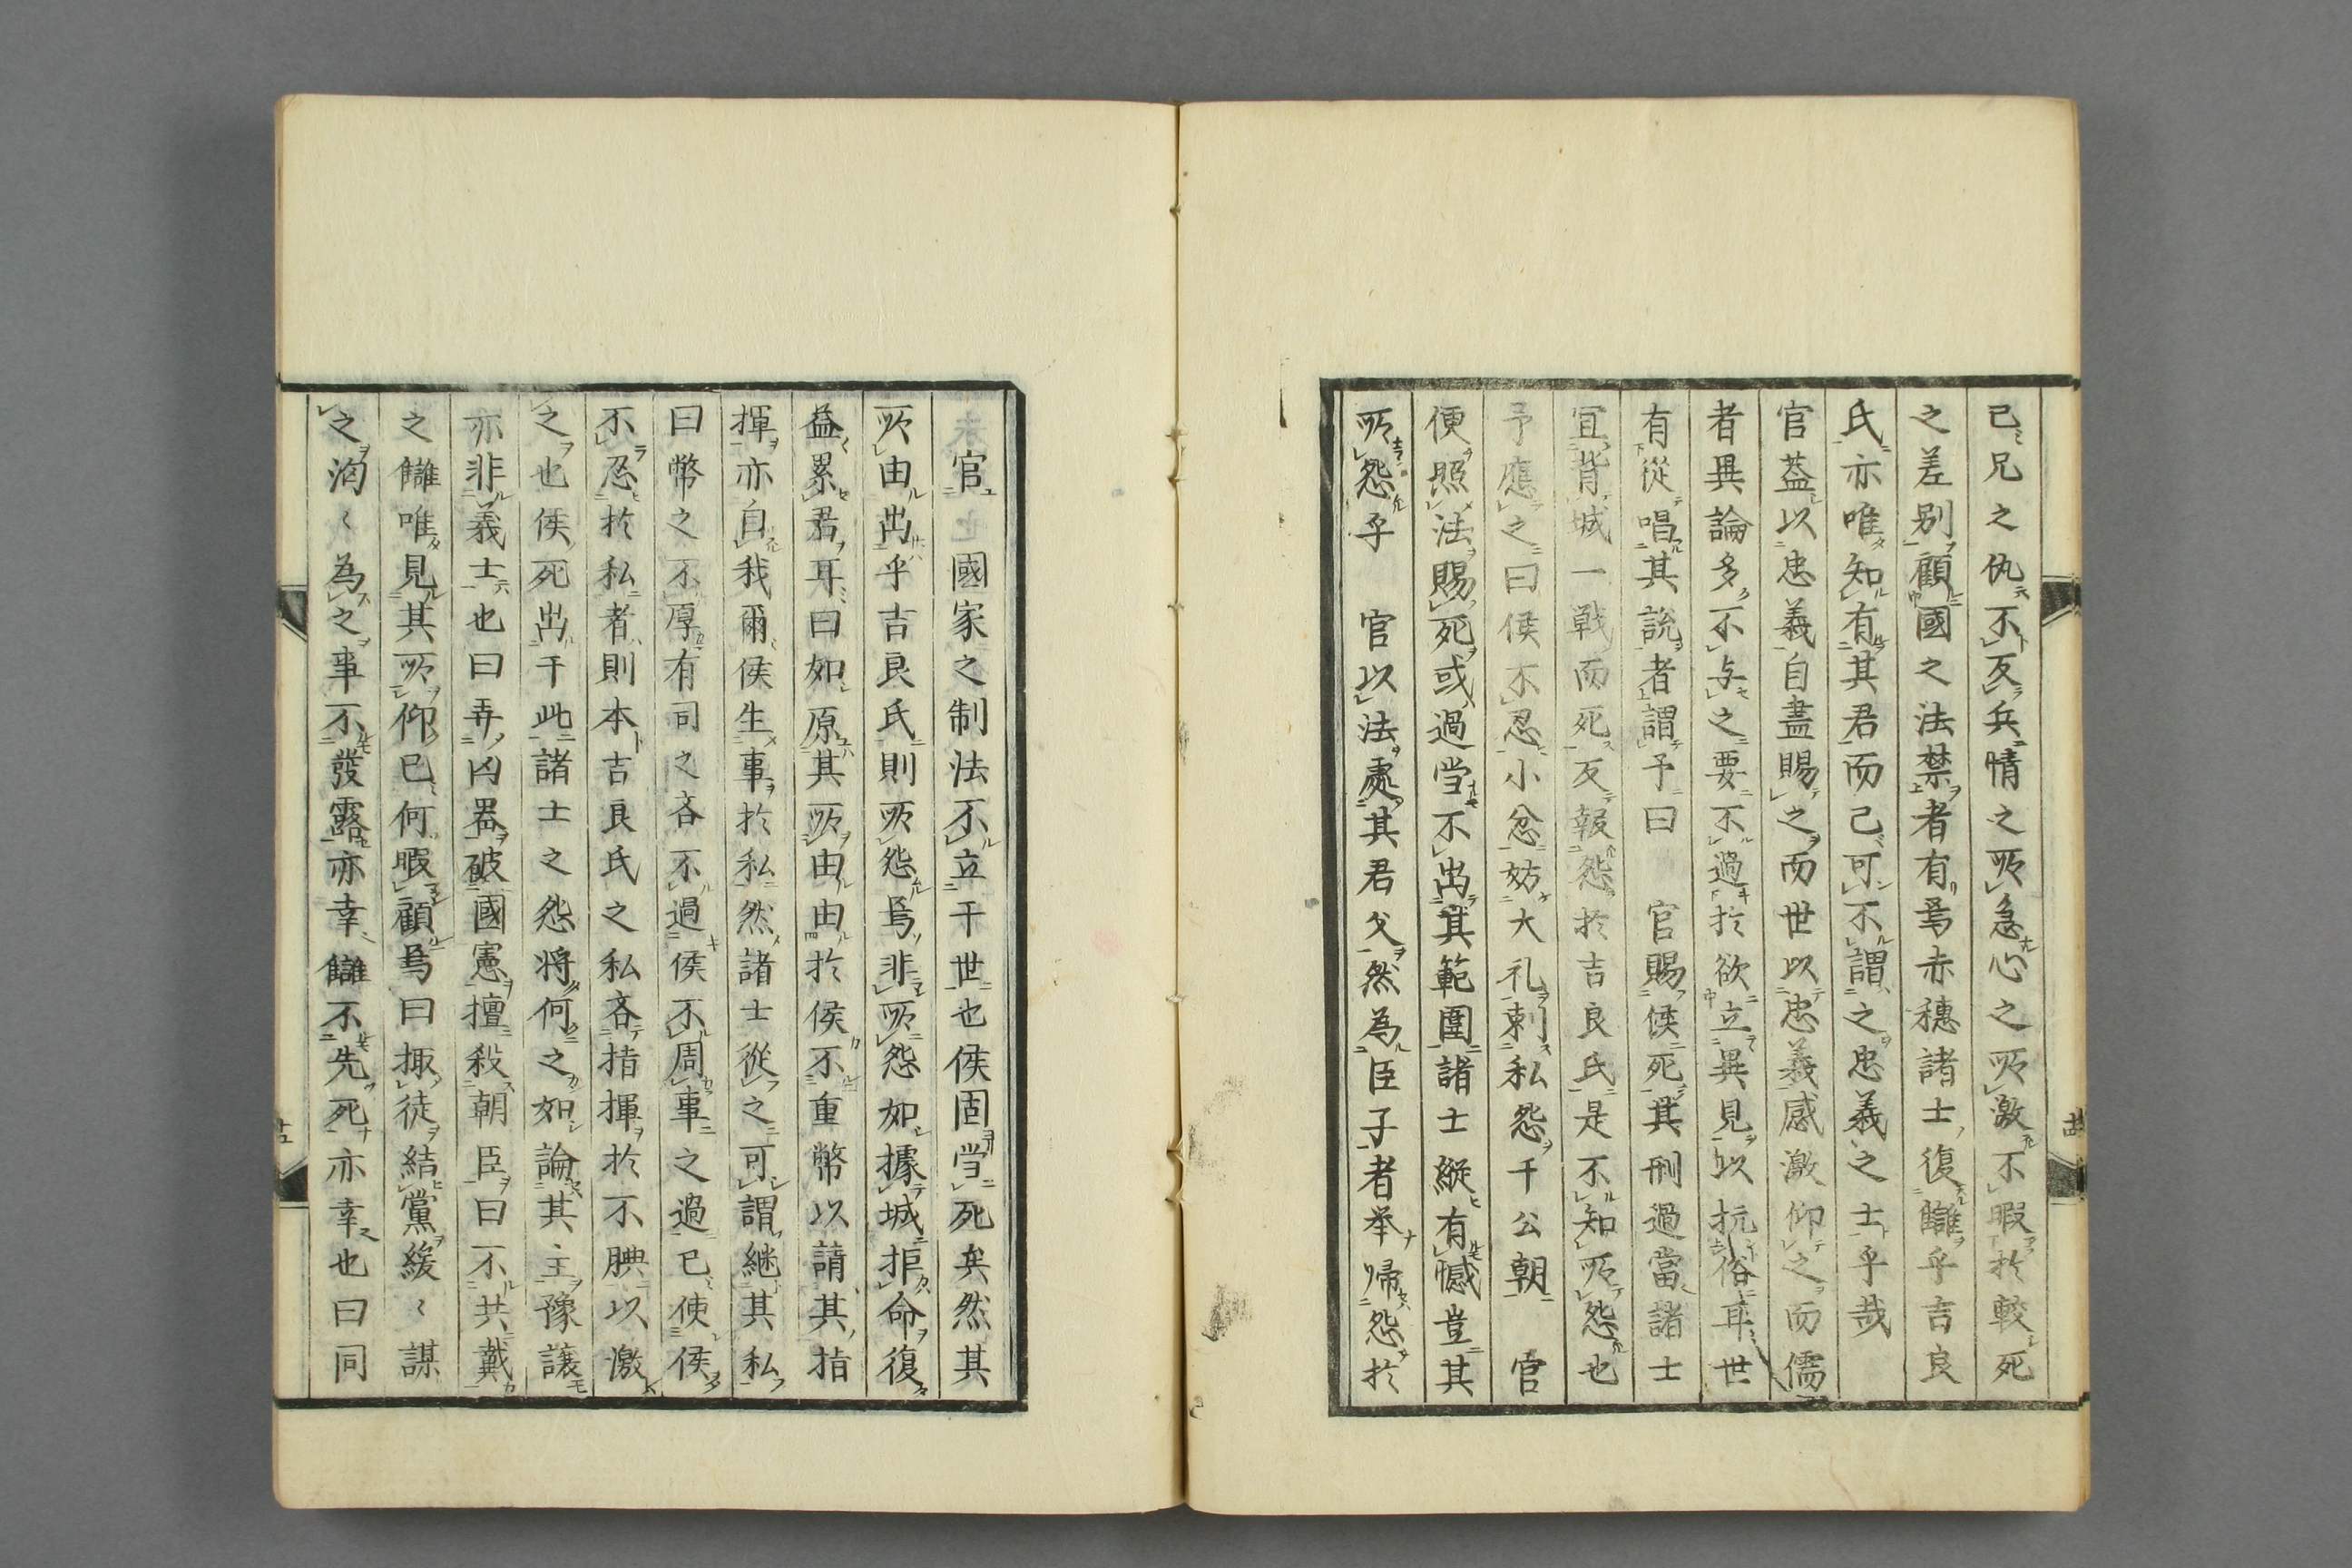 己兄之仇不反兵情之所急心之所激不暇於較死
之差别顧國之法禁者有焉赤穗諸士復讎乎吉良
氏亦唯知有其君而已可不謂之忠義之士乎哉
官蓋以忠義自盡賜之而世以忠義感激仰之而儒
者異論多不与之要不過於欲立異見以抗俗耳世
有從唱其說者謂予曰　官賜侯死其刑過當諸士
宜背城一戰而死反報怨於吉良氏是不知所怨也
予應之曰侯不忍小忿妨大礼刺私怨干公朝　官
便照法賜死或過当不出其範圍諸士縱有憾豈其
所怨乎　官以法處其君父然為臣子者举帰怨於
官　國家之制法不立于世也侯固当死矣然其
所由出乎吉良氏則所怨焉非所怨如據城拒命復
益累君耳曰如原其所由由於侯不重幣以請其指
揮亦自我爾侯生事於私然諸士從之可謂継其私
曰幣之不厚有司之吝不過侯不周事之過已使侯
不忍於私者則本吉良氏之私吝指揮於不腆以激
之也侯死出于此諸士之怨将何之如論其主豫讓
亦非義士也曰弄凶器破國憲擅殺朝臣曰不共戴
之讎唯見其所仰已何暇顧焉曰掫徒結黨緩〻謀
之洶〻為之事不發露亦幸讎不先死亦幸也曰同